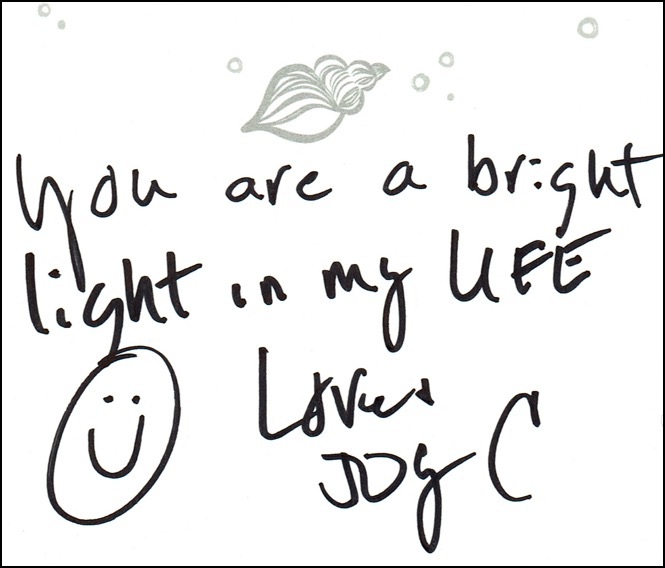 you are a bright
light in my LIFE
Love,
JOy C